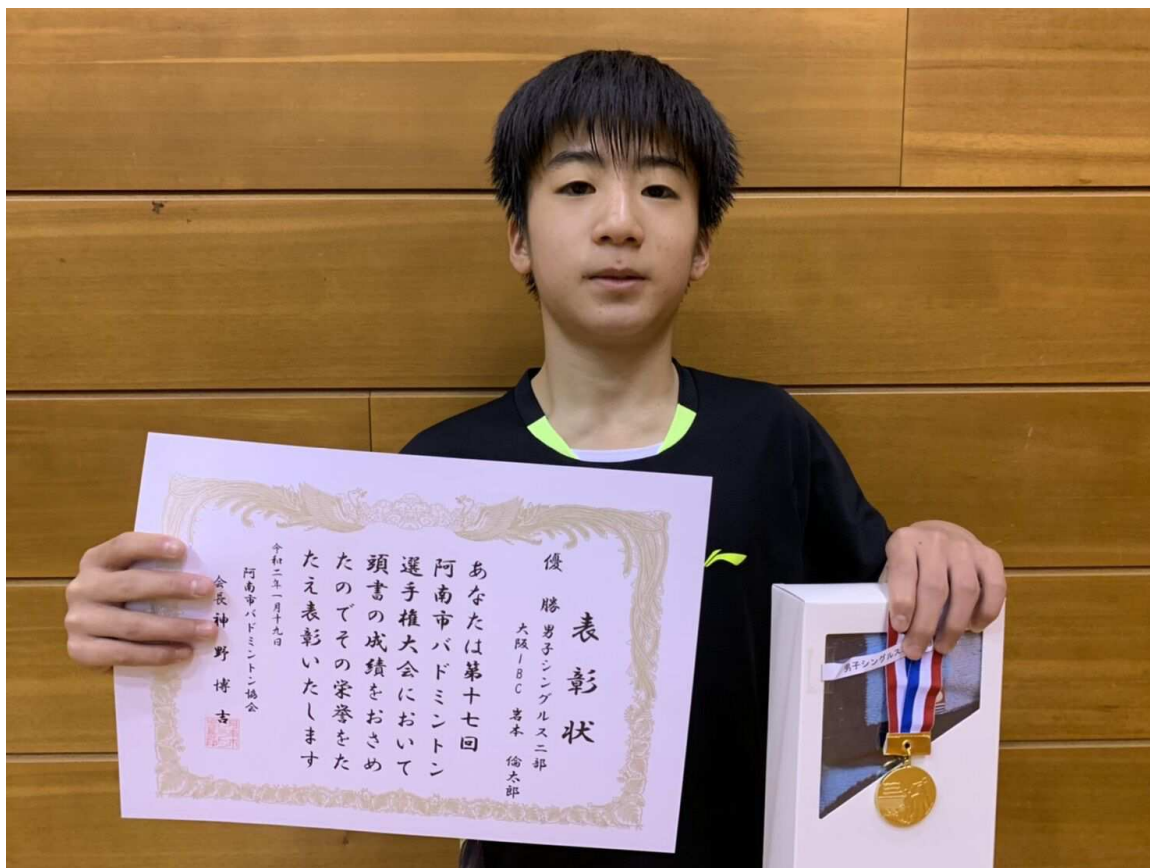 表彰状
優勝 男子シングルス二部
大阪IBC 岩本 倫太郎
あなたは第十七回
阿南市バドミントン
選手権大会において
頭書の成績をおさめ
たのでその栄誉をた
たえ表彰いたします
令和二年一月十九日
阿南市バドミントン協会
会長 神野博吉
男子シングルス